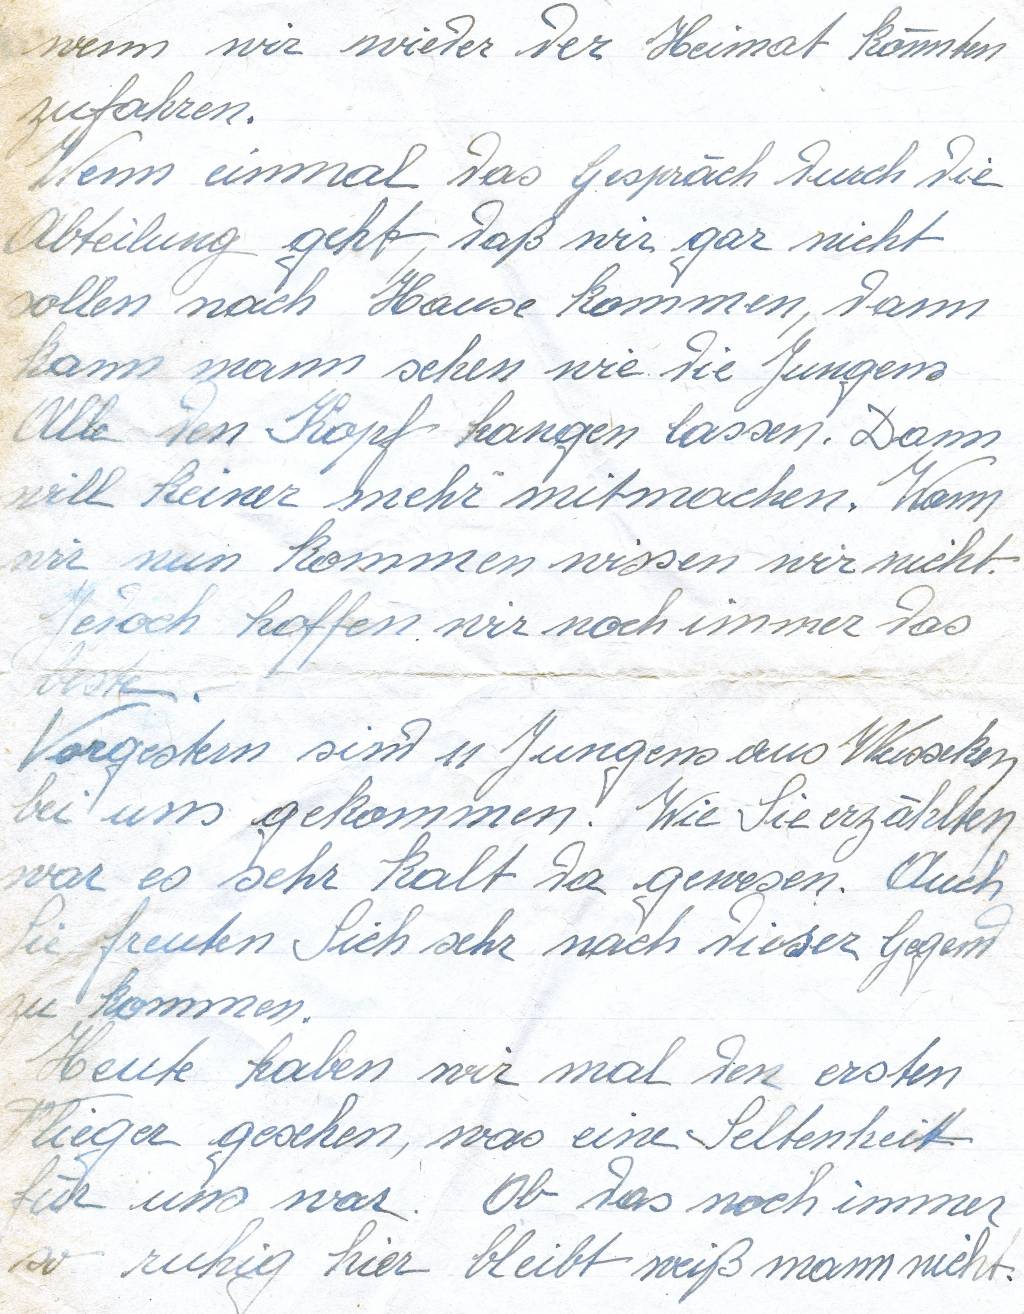 wenn wir wieder der Heimat könnten
zufahren.
Wenn einmal das Gespräch durch die
Abteilung geht, daß wir gar nicht
sollen nach Hause kommen, dann
kann mann sehen wie die Jungens
Alle den Kopf hangen lassen. Dann
will keiner mehr mitmachen. Wann
wir nun kommen wissen wir nicht.
Jedoch hoffen wir noch immer das
beste.
Vorgestern sind 11 Jungens aus
bei uns gekommen. Wie Sie erzählten
war es sehr kalt da gewesen. Auch
Sie freuten Sich sehr nach dieser Gegend
zu kommen.
Heute haben wir mal den ersten
Flieger gesehen, was eine Seltenheit
für uns war. Ob das noch immer
so ruhig hier bleibt weiß mann nicht.